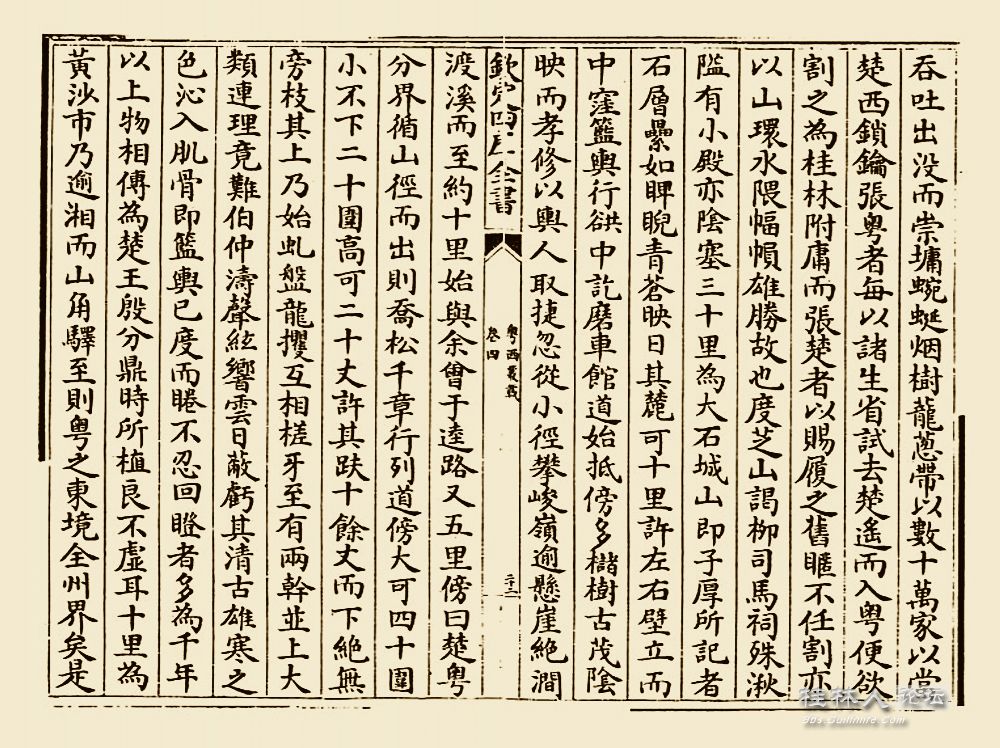 吞吐出没而崇墉蜿蜒烟樹蘢蔥帶以數十萬家以當
楚西鎖鑰張粤者每以諸生省試去楚遙而入粤便欲
割之為桂林附庸而張楚者以賜履之舊匪不任割亦
以山環水隈幅幀雄勝故也度芝山謁柳司馬祠殊湫
隘有小殿亦陰塞三十里為大石城山即子厚所記者
石層纍如睥睨青蒼映日其麓可十里許左右壁立而
中窪籃輿行谼中訖磨車館道始抵傍多櫧樹古茂陰
映而孝修以輿人取捷忽從小徑攀峻嶺逾懸崖絶澗
欽定四庫全書
粤西叢載
卷四
二十二
渡溪而至約十里始與余會于逵路又五里傍曰楚粤
分界循山徑而出則喬松千章行列道傍大可四十圍
小不下二十圍高可二十丈許其趺十餘丈而下絶無
旁枝其上乃始虬盤龍攫互相槎牙至有兩幹並上大
類連理竟難伯仲濤聲絃響雲日蔽虧其清古雄寒之
色沁入肌骨即籃輿已度而睠不忍回瞪者多為千年
以上物相傳為楚王殷分鼎時所植良不虛耳十里為
黄沙市乃逾湘而山角驛至則粤之東境全州界矣是
桂林人论坛
bbs.guilinlife.com